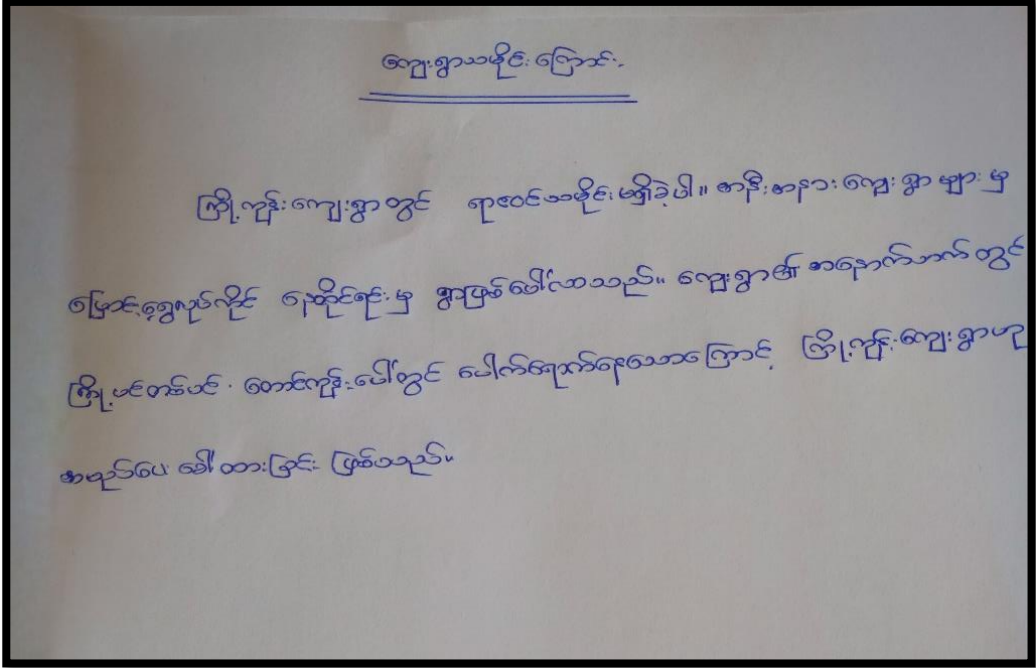 ကျေးရွာသမိုင်းကြောင်း
ကြို့ကုန်းကျေးရွာတွင် ရာဇဝင်သမိုင်းမရှိခဲ့ပါ။ အနီးအနားကျေးရွာများမှ
ပြောင်းရွှေ့လုပ်ကိုင် နေထိုင်ရင်းမှ ရွာဖြစ်ပေါ်လာသည်။ ကျေးရွာ၏ အနောက်ဘက်တွင်
ကြို့ပင်တစ်ပင် တောင်ကုန်းပေါ်တွင် ပေါက်ရောက်နေသောကြောင့် ကြို့ကုန်းကျေးရွာဟု
အမည်ပေး ခေါ်ထားခြင်း ဖြစ်သည်။